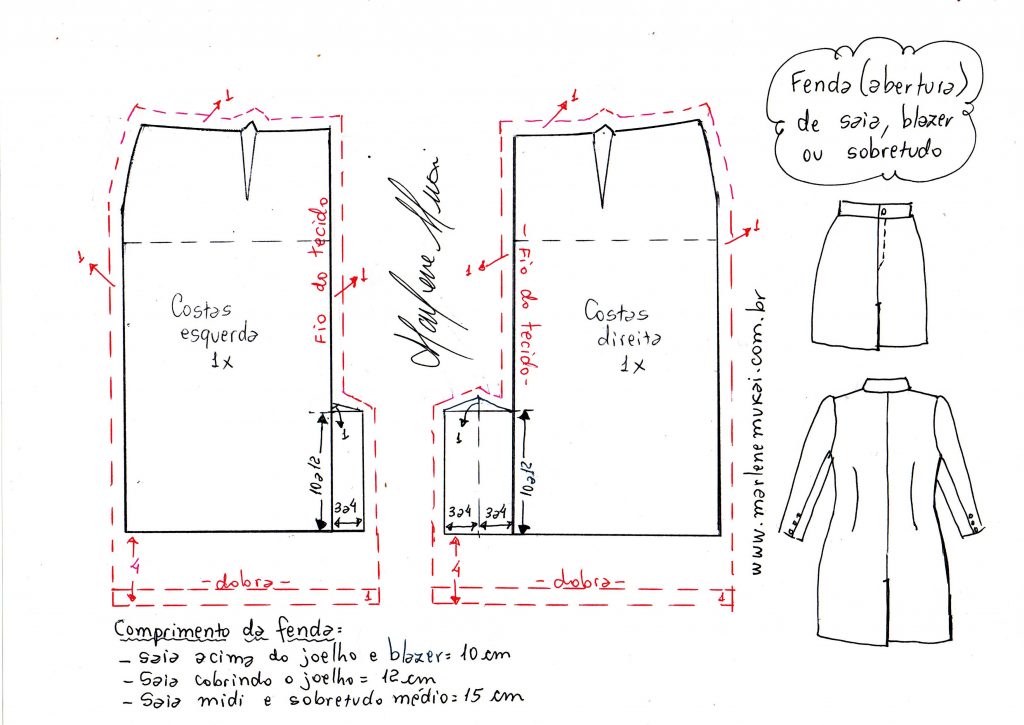 Fenda (abertura)
de saia, blazer
ou sobretudo
1
1
1
1
1
1
Fio do tecido
- Fio do tecido -
Marlene Mukai
Costas
esquerda
1x
Costas
direita
1x
www.marlenemukai.com.br
1
1
10a12
3a4
3a4
3a4
10a12
4
- dobra -
1
4
- dobra -
1
Comprimento da fenda:
- Saia acima do joelho e blazer = 10 cm
- Saia cobrindo o joelho = 12 cm
- Saia midi e sobretudo médio = 15 cm